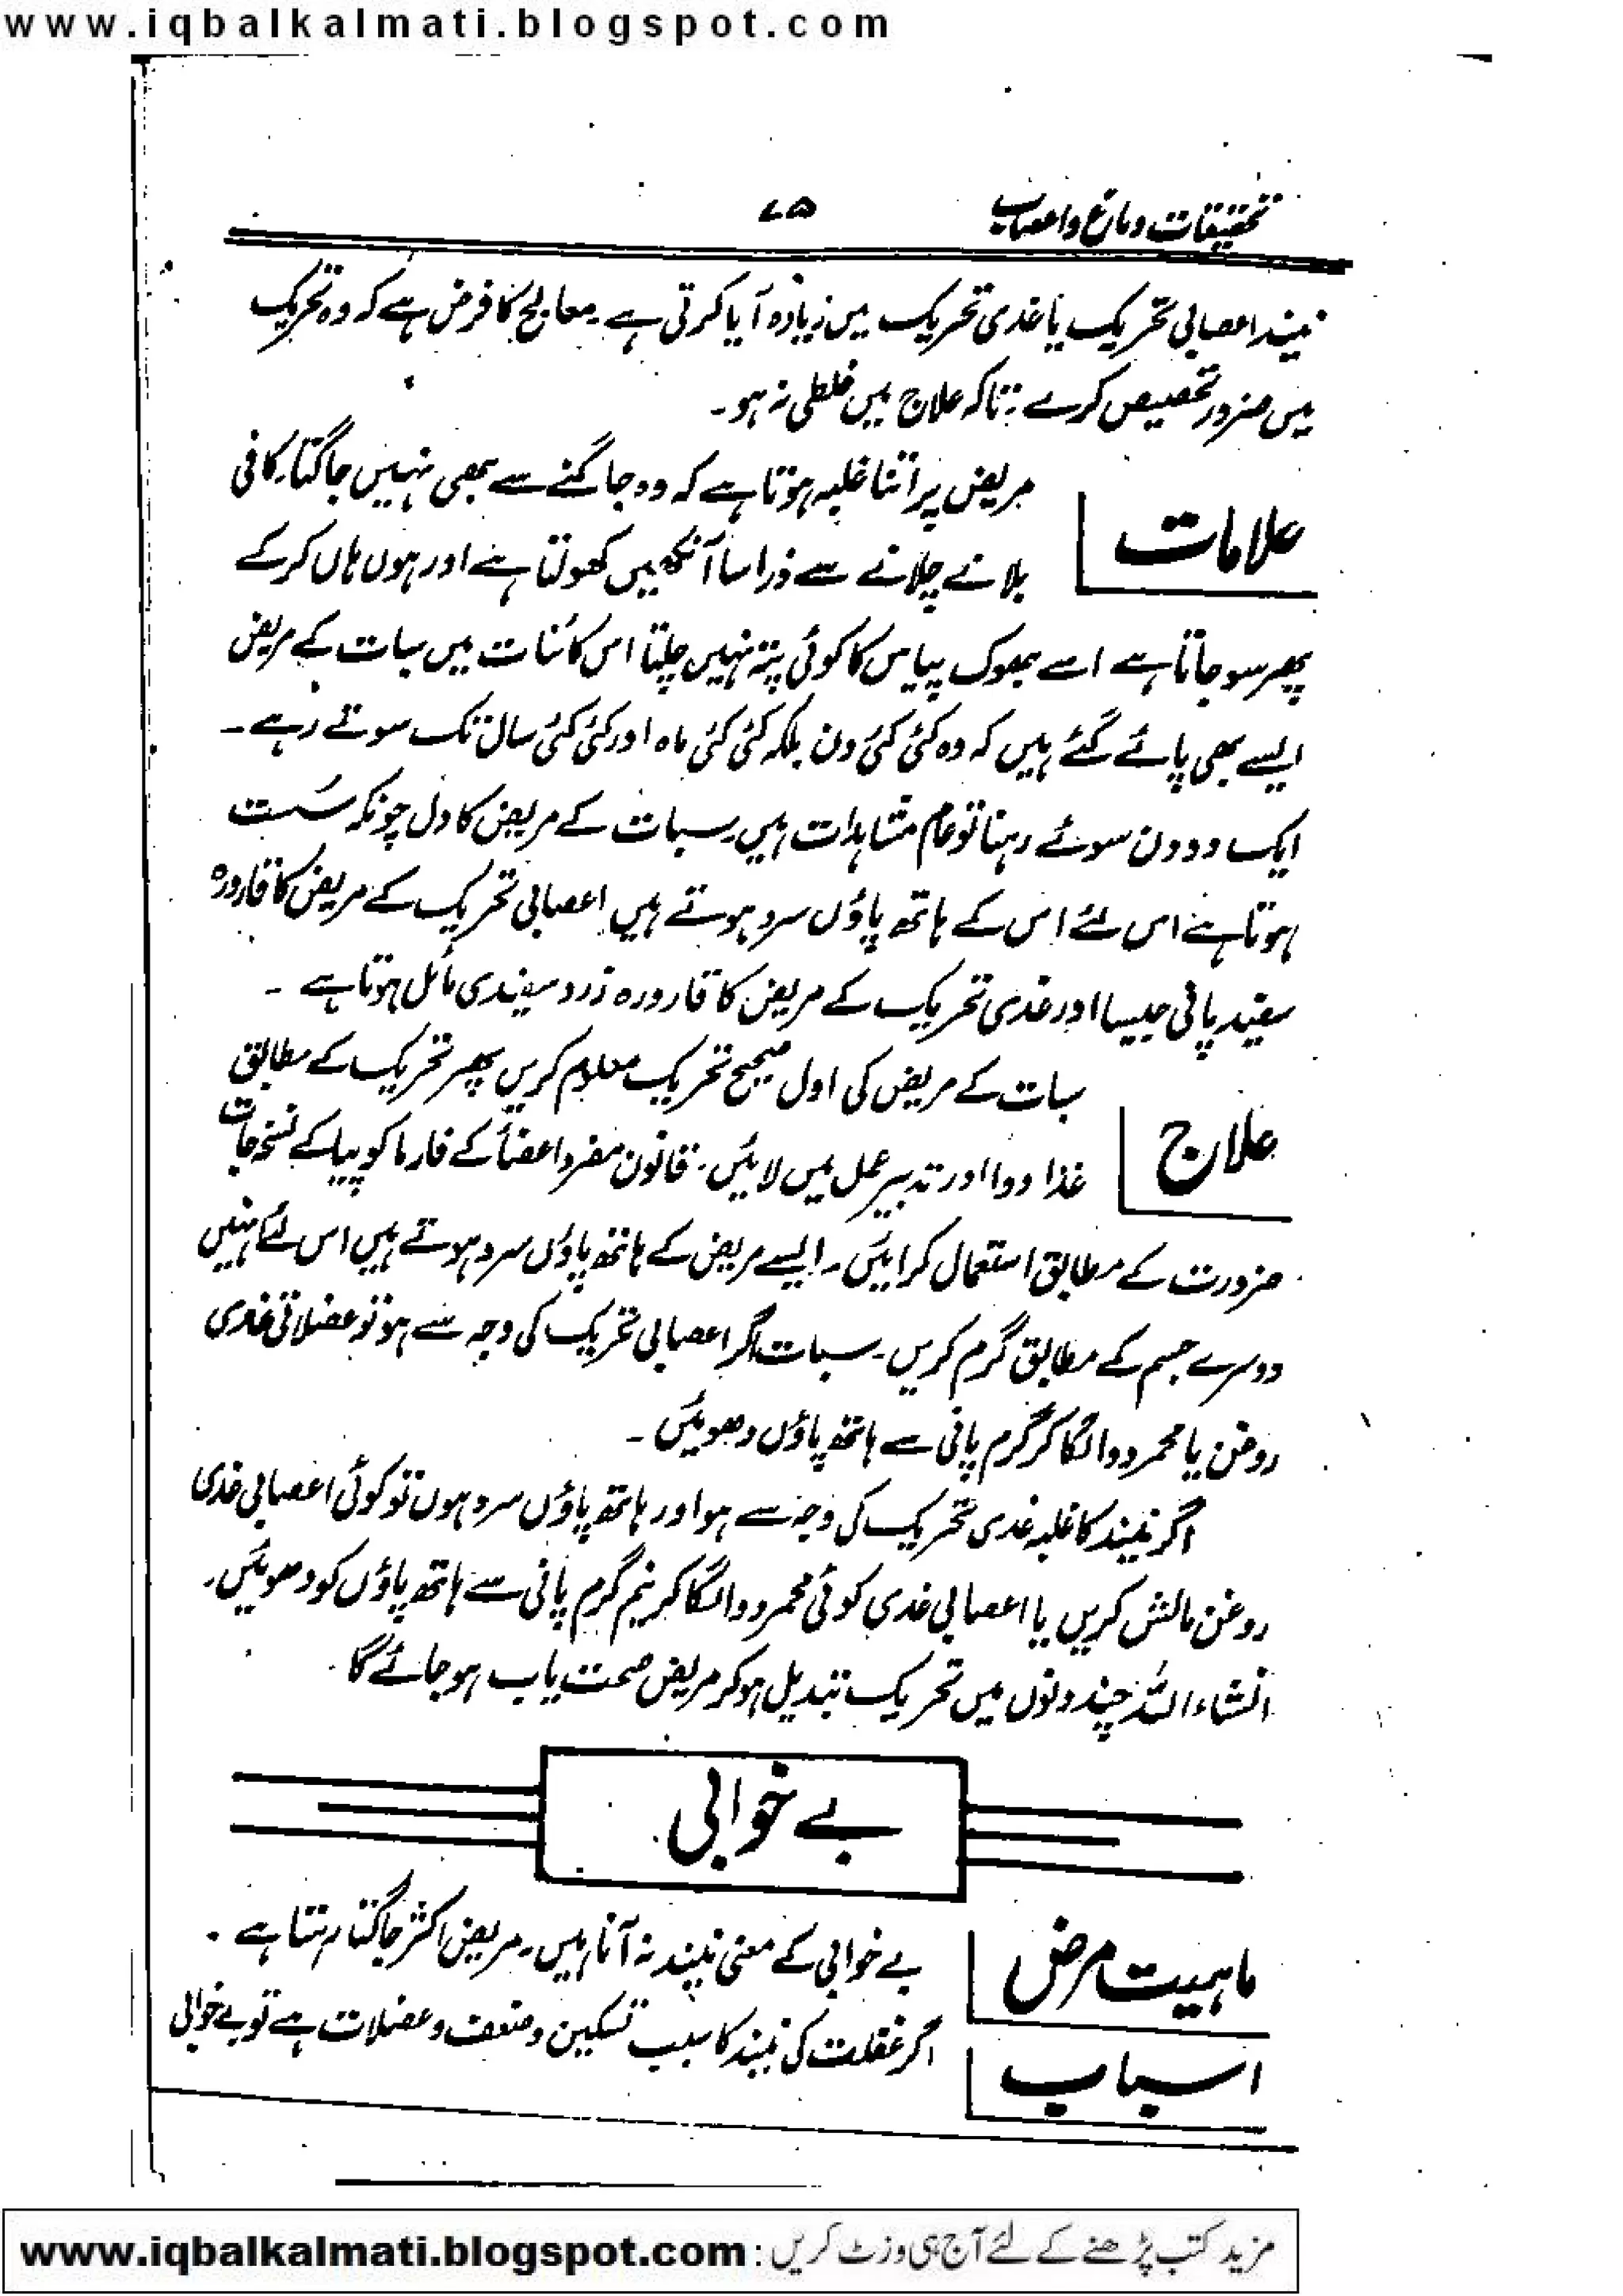 www.iqbalkalmati.blogspot.com
تحقیقات دماغ و اعصاب
۷۵
نیند اعصابی تحریک یا غدی تحریک میں زیادہ آیا کرتی ہے۔ معالج کا فرض ہے کہ وہ تحریک
میں ضرور تخصیص کرے تاکہ علاج میں غلطی نہ ہو۔
علامات
مریض پر اتنا غلبہ ہوتا ہے کہ وہ جاگنے سے بھی نہیں جاگتا۔ کافی
بلانے چلانے سے ذرا سا آنکھیں کھولتا ہے اور ہوں ہاں کر کے
پھر سو جاتا ہے اسے بھوک پیاس کا کوئی پتہ نہیں چلتا اس کائنات میں سبات کے مریض
ایسے بھی پائے گئے ہیں کہ وہ کئی کئی دن بلکہ کئی کئی ماہ اور کئی کئی سال تک سوتے رہے۔
ایک دو دن سوئے رہنا تو عام مشاہدات ہیں۔ سبات کے مریض کا دل چونکہ سُست
ہوتا ہے اس لئے اس کے ہاتھ پاؤں سرد ہوتے ہیں اعصابی تحریک کے مریض کا قارورہ
سفید پانی جیسا اور غدی تحریک کے مریض کا قارورہ زرد سفیدی مائل ہوتا ہے۔
علاج
سبات کے مریض کی اول صحیح تحریک معلوم کریں پھر تحریک کے مطابق
غذا دوا اور تدبیر عمل میں لائیں۔ قانون مفرد اعضأ کے فارما کوپیا کے نسخہ جات
ضرورت کے مطابق استعمال کرائیں۔ ایسے مریض کے ہاتھ پاؤں سرد ہوتے ہیں اس لئے انہیں
دوسرے جسم کے مطابق گرم کریں۔ سبات اگر اعصابی تحریک کی وجہ سے ہو تو عضلاتی غدی
روغن یا محمر دوا لگا کر گرم پانی سے ہاتھ پاؤں دھوئیں۔
اگر نیند کا غلبہ غدی تحریک کی وجہ سے ہو اور ہاتھ پاؤں سرد ہوں تو کوئی اعصابی غدی
روغن مالش کریں یا اعصابی غدی کوئی محمر دوا لگا کر نیم گرم پانی سے ہاتھ پاؤں کو دھوئیں۔
انشاء اللہ چند دنوں میں تحریک تبدیل ہو کر مریض صحت یاب ہو جائے گا۔
بے خوابی
ماہیت مرض
بے خوابی کے معنی نیند نہ آنا ہیں۔ مریض اکثر جاگتا رہتا ہے۔
اسباب
اگر غفلت کی نیند کا سبب تسکین و ضعف و عضلات ہے تو بے خوابی
مزید کتب پڑھنے کے لئے آج ہی وزٹ کریں : www.iqbalkalmati.blogspot.com